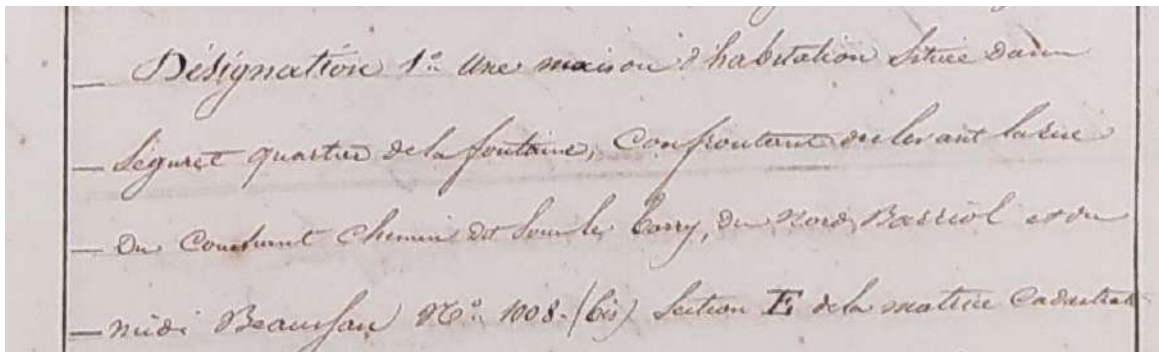 Désignation 1° Une maison d'habitation située dans
Séguret quartier de la fontaine, Confrontant du levant la rue
du Couchant Chemin dit Sous le Barry, du Nord Barriol et du
midi Beaussan N° 1008 (bis) Section E de la matrice Cadastrale